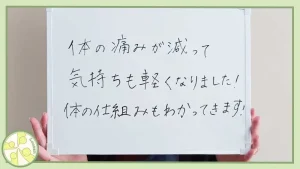 体の痛みが減って
気持ちも軽くなりました!
体の仕組みもわかってきます!